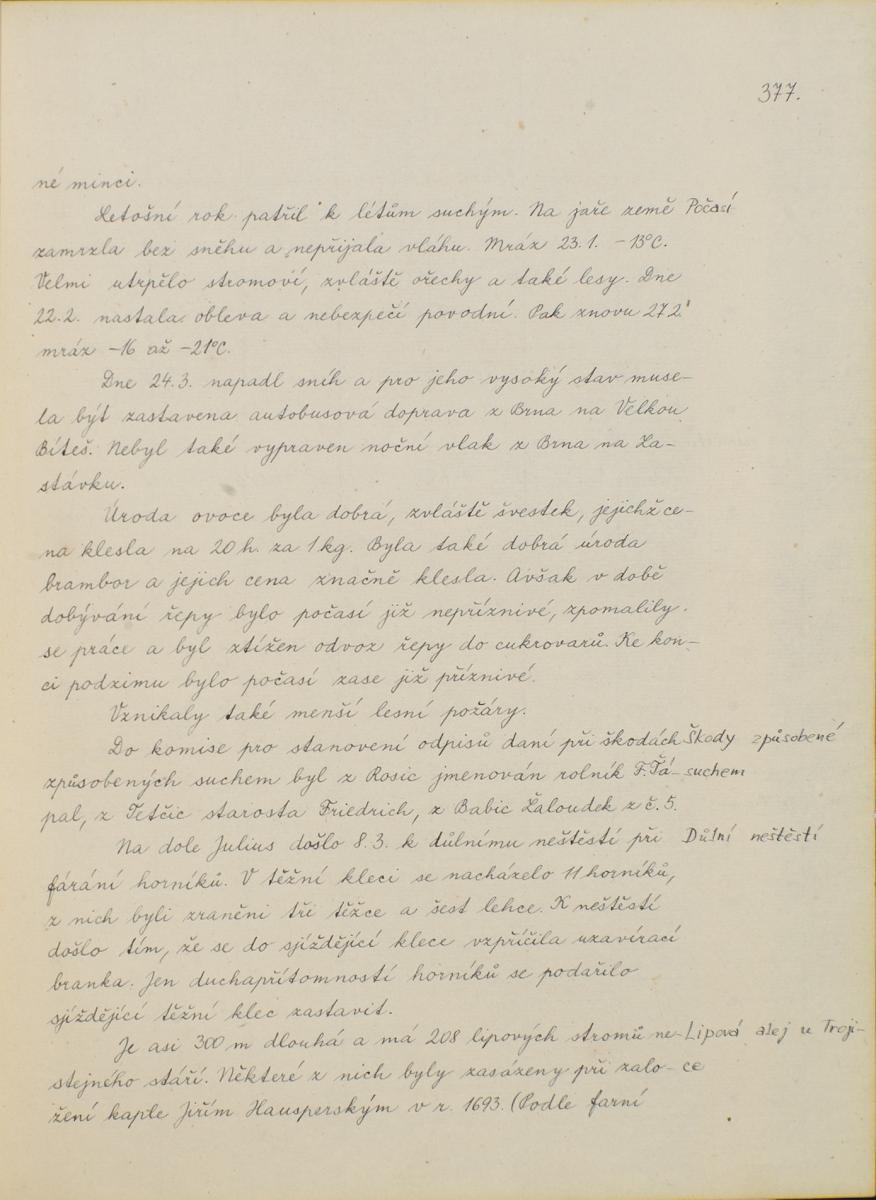 377.
né minci.
Letošní rok patřil k létům suchým. Na jaře země Počasí
zamrzla bez sněhu a nepřijala vláhu. Mráz 23.1. -13°C.
Velmi utrpělo stromoví, zvláště ořechy a také lesy. Dne
22.2. nastala obleva a nebezpečí povodní. Pak znovu 27.2.
mráz -16 až -21°C.
Dne 24.3. napadl sníh a pro jeho vysoký stav muse-
la být zastavena autobusová doprava z Brna na Velkou
Bíteš. Nebyl také vypraven noční vlak z Brna na Za-
stávku.
Úroda ovoce byla dobrá, zvláště švestek, jejichž ce-
na klesla na 20 h. za 1 kg. Byla také dobrá úroda
brambor a jejich cena značně klesla. Avšak v době
dobývání řepy bylo počasí již nepříznivé, zpomalily
se práce a byl ztížen odvoz řepy do cukrovarů. Ke kon-
ci podzimu bylo počasí zase již příznivé.
Vznikaly také menší lesní požáry.
Do komise pro stanovení odpisů daní při škodách Škody způsobené
způsobených suchem byl z Rosic jmenován rolník F. Ťá- suchem
pal, z Tetčic starosta Friedrich, z Babic Žaloudek z č. 5.
Na dole Julius došlo 8.3. k důlnímu neštěstí při Důlní neštěstí
fárání horníků. V těžní kleci se nacházelo 11 horníků,
z nich byli zraněni tři těžce a šest lehce. K neštěstí
došlo tím, že se do sjíždějící klece vzpříčila uzavírací
branka. Jen duchapřítomností horníků se podařilo
sjíždějící těžní klec zastavit.
Je asi 300 m dlouhá a má 208 lipových stromů ne- Lipová alej u Troji-
stejného stáří. Některé z nich byly zasázeny při zalo- ce
žení kaple Jiřím Hausperským v r. 1693. (Podle farní